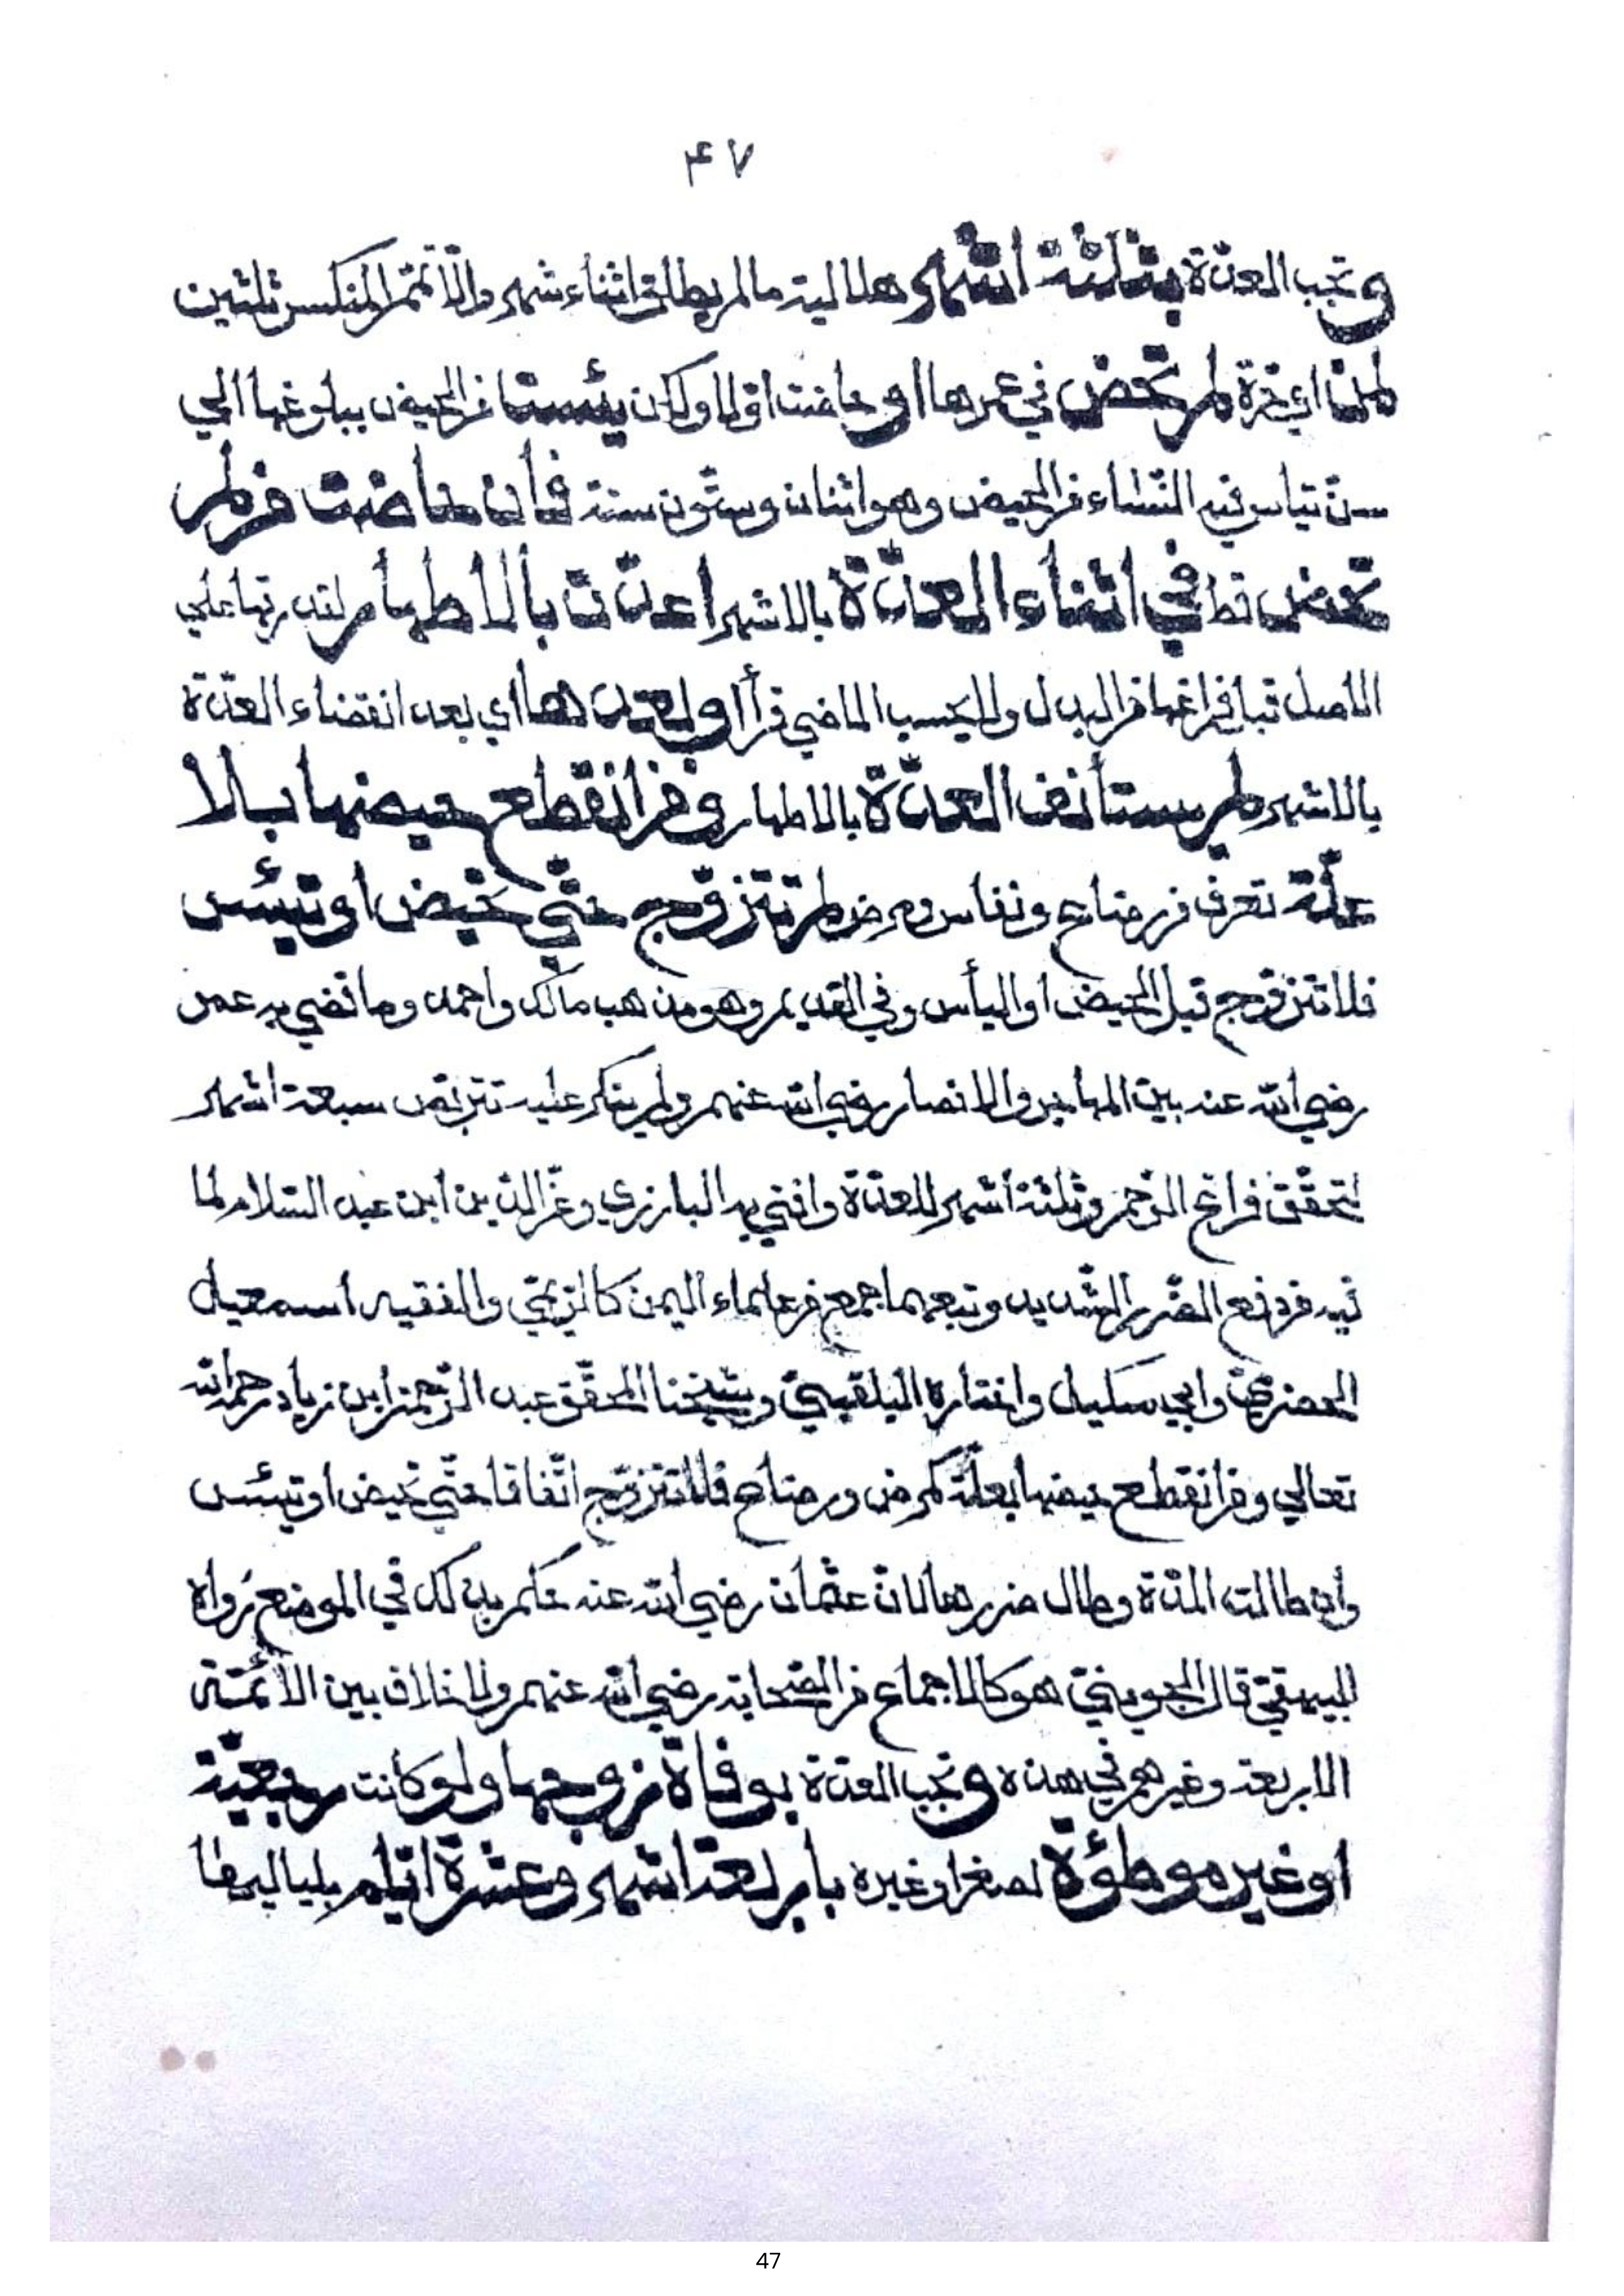 ٤٧
و تجب العدّة بثلثة اشهر هلالية ما لم يطلق اثناء شهر والّا تمّم المنكسر ثلثين
لمن اي حرّة لم تحض في عمرها او حاضت اوّلا ولكن يئست من الحيض ببلوغها الي
سنّ تياس فيه النّساء من الحيض وهو اثنان وستّون سنة فأن حاضت من لم
تحض قط في اثناء العدّة بالاشهر اعتدّت بالاطهار لقدرتها علي
الاصل قبل فراغها من البدل ولا يحسب الماضي قرأ او بعدها اي بعد انقضاء العدّة
بالاشهر لم يستأنف العدّة بالاطهار ومن انقطع حيضها بلا
علّة تعرف من رضاع ونفاس ومرض لم تتزوّج حتّي تحيض او تيئس
فلا تتزوّج قبل الحيض او اليأس وفي القديم وهو مذهب مالك واحمد وما قضي به عمر
رضي الله عنه بين المهاجرين والانصار رضي الله عنهم ولم ينكر عليه تتربّص سبعة اشهر
لتحقّق فراغ الرّحم وثلثة أشهر للعدّة وافتي به البارزي وعزّ الدّين ابن عبد السّلام لما
فيه من دفع الضّرر الشّديد وتبعهما جمع من علماء اليمن كالزّيمي والفقيه اسمعيل
الحضرميّ وابي سكيل واختاره البلقينيّ وشيخنا المحقّق عبد الرّحمن ابن زياد رحمه الله
تعالي ومن انقطع حيضها بعلّة كمرض ورضاع فلا تتزوّج اتّفاقا حتّي تحيض او تيئس
وأن طالت المدّة وطال ضررها لانّ عثمان رضي الله عنه حكم بذلك في الموضع رواه
البيهقيّ قال الجوينيّ هو كالاجماع من الصّحابة رضي الله عنهم ولا خلاف بين الأئمّة
الاربعة وغيرهم في هذه و تجب العدّة بوفاة زوجها ولو كانت رجعيّة
او غير موطوّة لصغر او غيره بأربعة اشهر وعشرة ايّام بلياليها